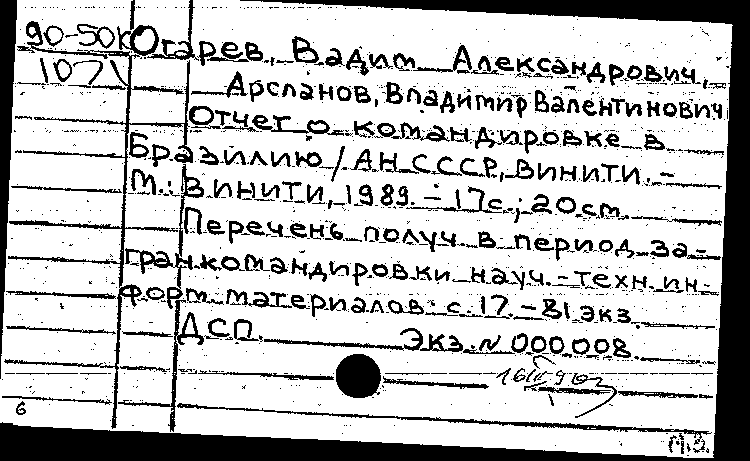 90-50к Огарев, Вадим Александрович,
1071 Арсланов, Владимир Валентинович
Отчет о командировке в
Бразилию / АН СССР, ВИНИТИ. –
М.: ВИНИТИ, 1989. – 17с.; 20см.
Перечень получ. в период за-
гранкомандировки науч.-техн. ин-
форм. материалов: с. 17. – 81 экз.
ДСП. Экз. № 000008.
6
М.З.